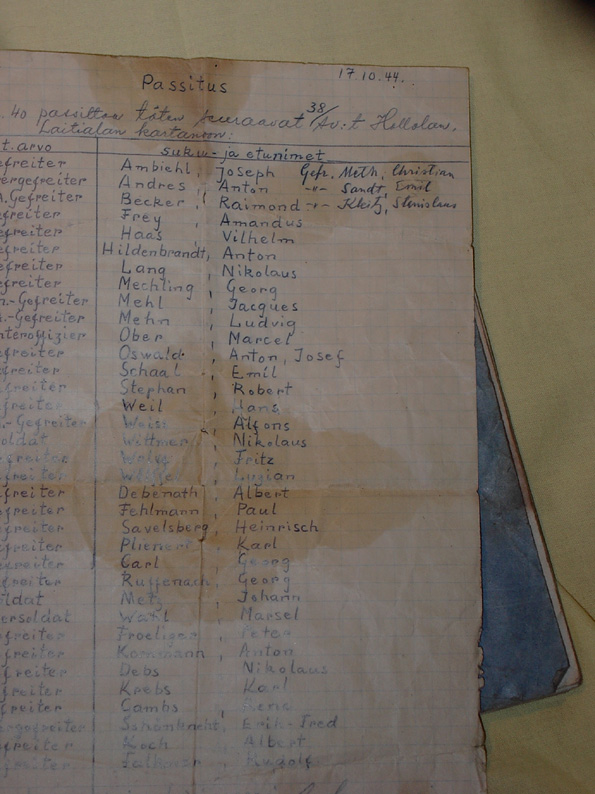 17.10.44.
Passitus
. 40 passitton täten seuraavat 38/ av:t Hollolan,
Laitialan kartanoon:
t. arvo suku- ja etunimet
efreiter Ambiehl, Joseph Gefr. Meth, Christian
ergefreiter Andres, Anton -"- Sandt, Emil
A.Gefreiter Becker, Raimond -"- Kleitz, Stanislaus
efreiter Frey, Amandus
efreiter Haas, Vilhelm
efreiter Hildenbrandt, Anton
efreiter Lang, Nikolaus
efreiter Mechling, Georg
.-Gefreiter Mehl, Jacques
.-Gefreiter Mehn, Ludvig
nteroffizier Ober, Marcel
efreiter Oswald, Anton, Josef
efreiter Schaal, Emil
efreiter Stephan, Robert
efreiter Weil, Hans
.-Gefreiter Weiss, Alfons
oldat Wittmer, Nikolaus
efreiter Fritz
efreiter Luzian
efreiter Debenath, Albert
efreiter Fehlmann, Paul
efreiter Savelsberg, Heinrisch
efreiter Karl
efreiter Carl, Georg
efreiter Ruffenach, Georg
oldat Metz, Johann
ersoldat Wahl, Marsel
efreiter Froeliger, Peter
efreiter Kornmann, Anton
efreiter Debs, Nikolaus
efreiter Krebs, Karl
efreiter Cambs, Rene
-gefreiter Schönknecht, Erik-Fred
efreiter Koch, Albert
efreiter Rudolf